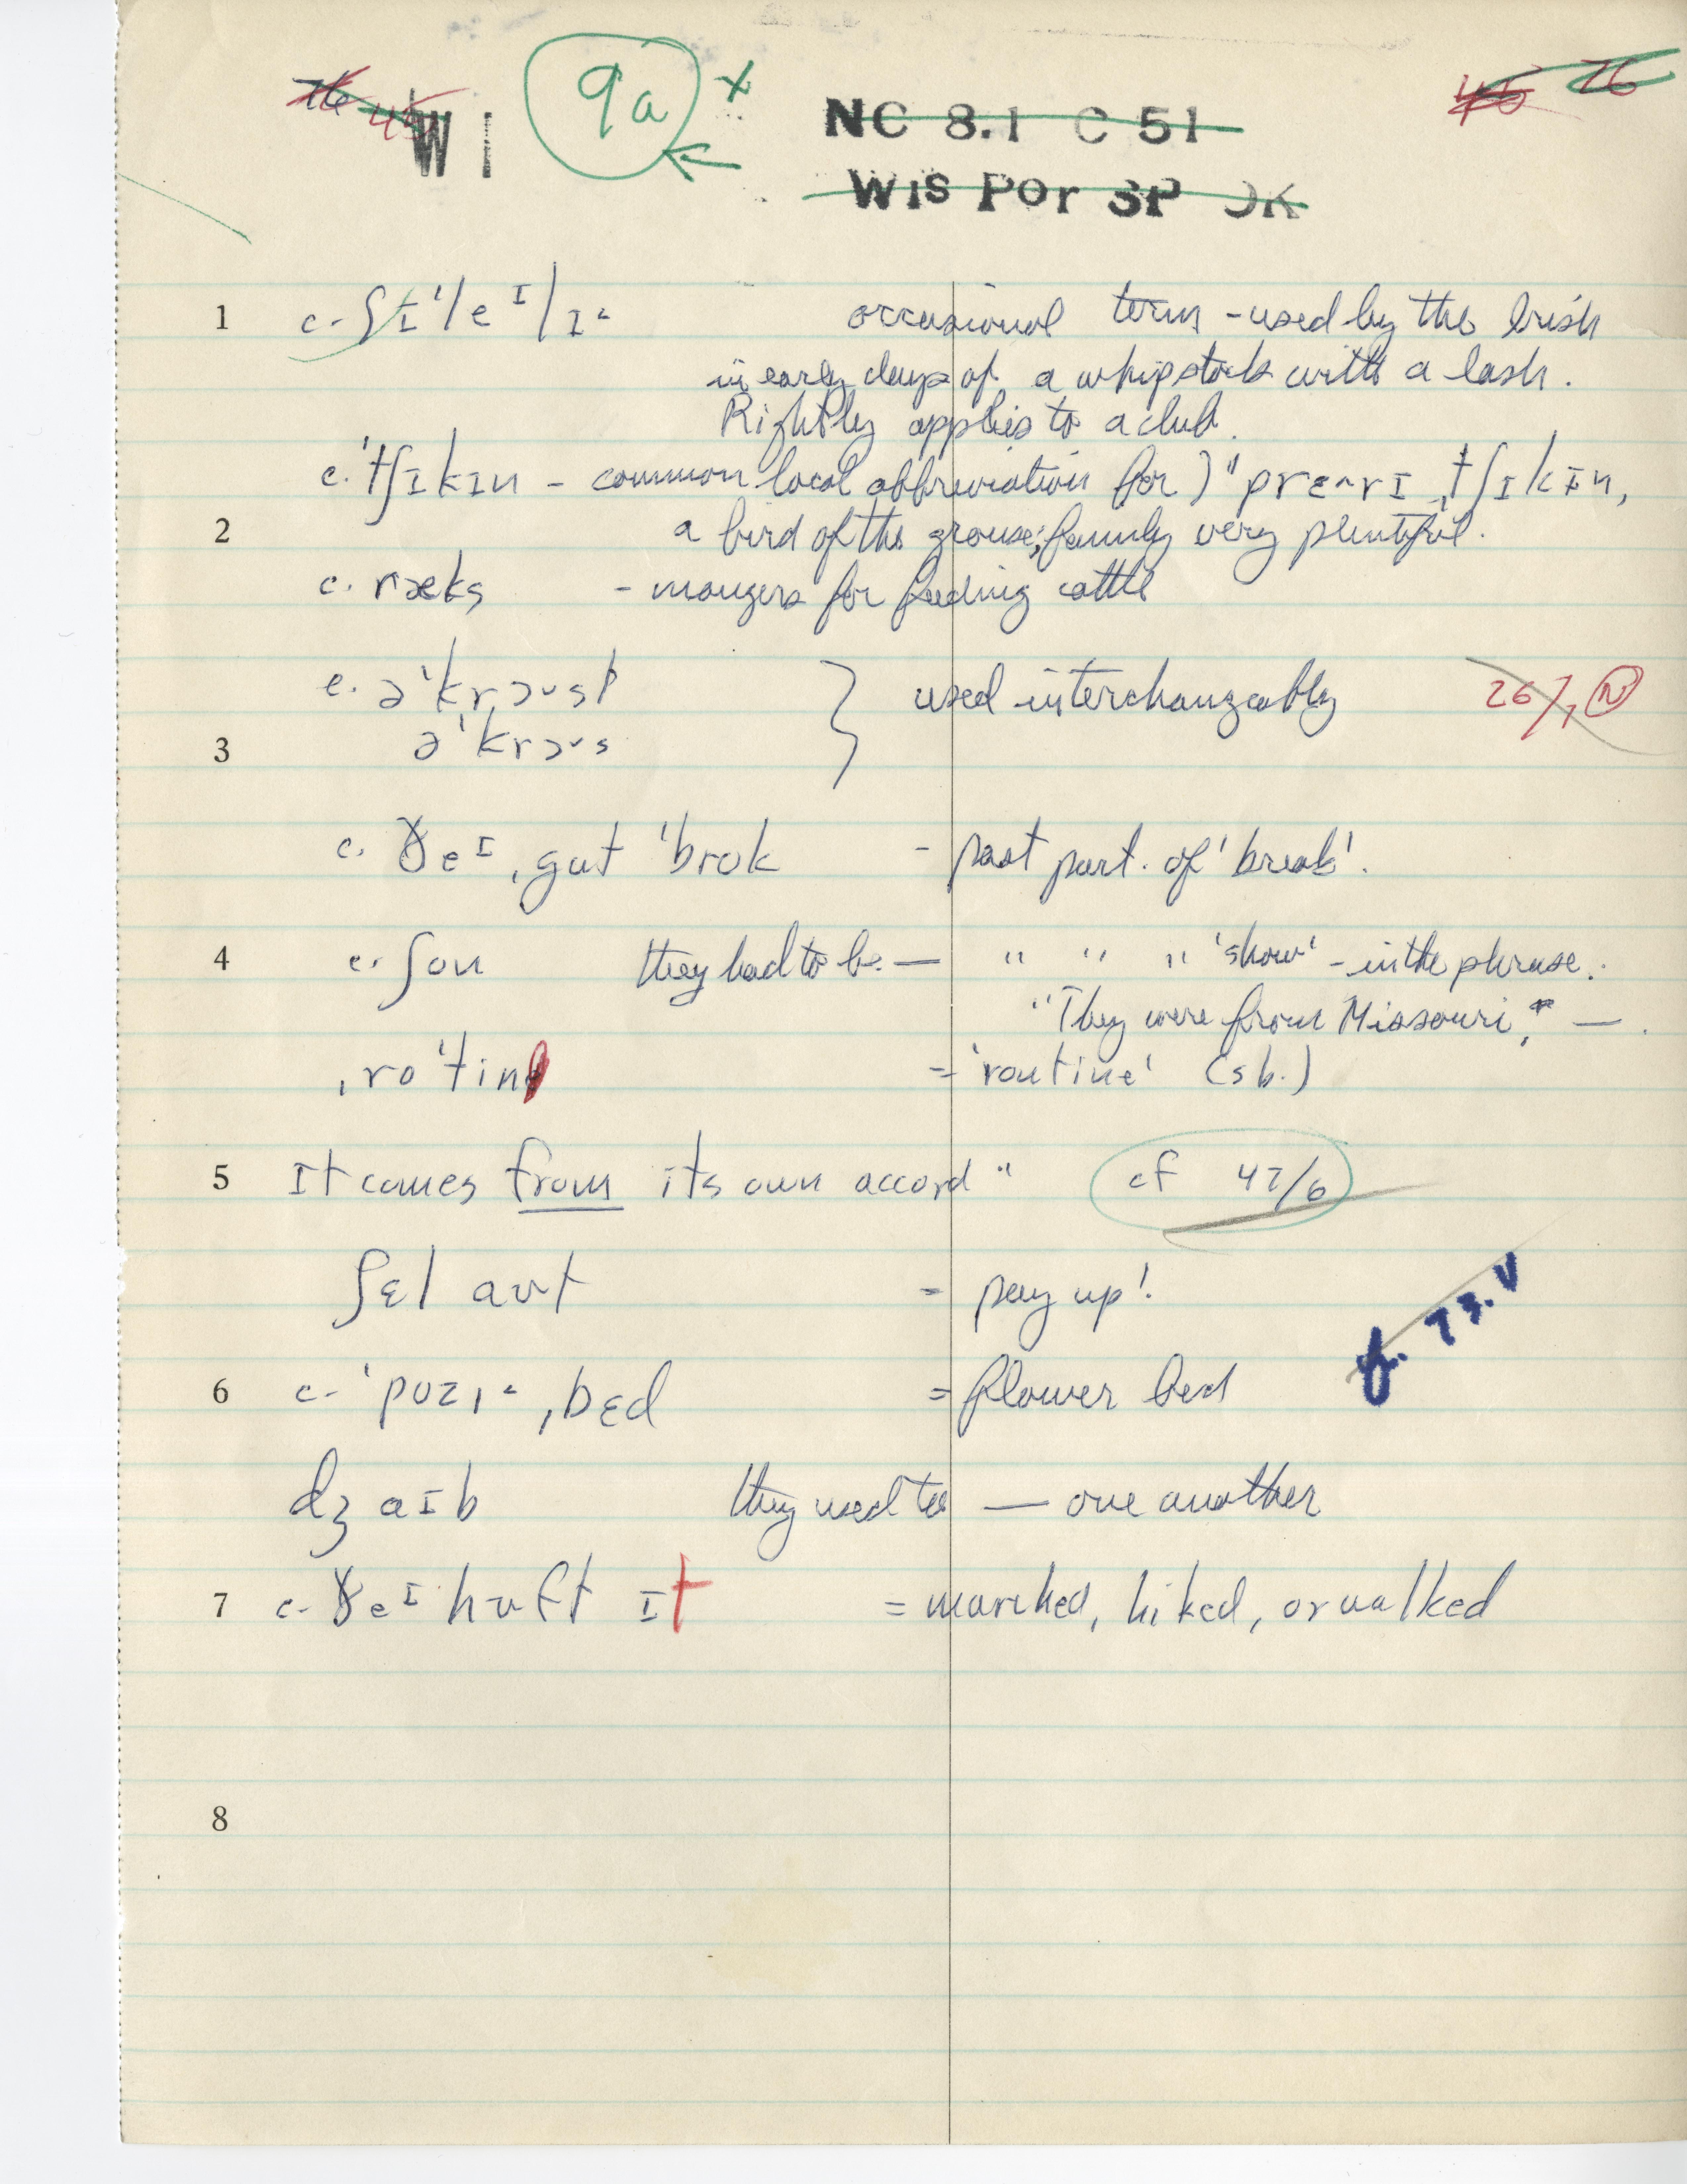 W I 9a x
NC 8.1 C 51
Wis Por SP OK
1 c. ʃɪˈleɪlɪ˂ occasional term - used by the Irish
in early days of a whipstock with a lash.
Rightly applies to a club.
c. ˈtʃɪkɪn - common local abbreviation for ) ˈˈprɛ˄rɪ ˌtʃɪkɪn,
2 a bird of the grouse family very plentiful.
c. ræks - mangers for feeding cattle
c. əˈkrɔʊst } used interchangeably 26/7 N
3 əˈkrɔʊs
c. ðeɪ ˌgɑt ˈbrok - past part. of 'break'.
4 c. ʃon they had to be — " " " 'show' - in the phrase.
"They were from Missouri," — .
ˌroˈtin = 'routine' (sb.)
5 It comes from its own accord" cf 47/6
ʃɛl aʊt = pay up!
73.V
6 c. ˈpozɪ˂ ˌbɛd = flower bed
dʒaɪb they used to — one another
7 c. ðeɪ hʊft ɪt = marched, hiked, or walked
8